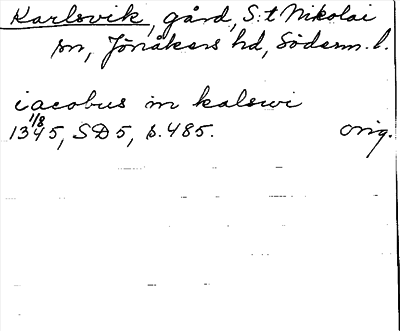 Karlsvik, gård, S:t Nikolai
sn, Jönåkers hd, Söderm. l.
iacobus in kalswi
1/8
1345, SD 5, s. 485. orig.